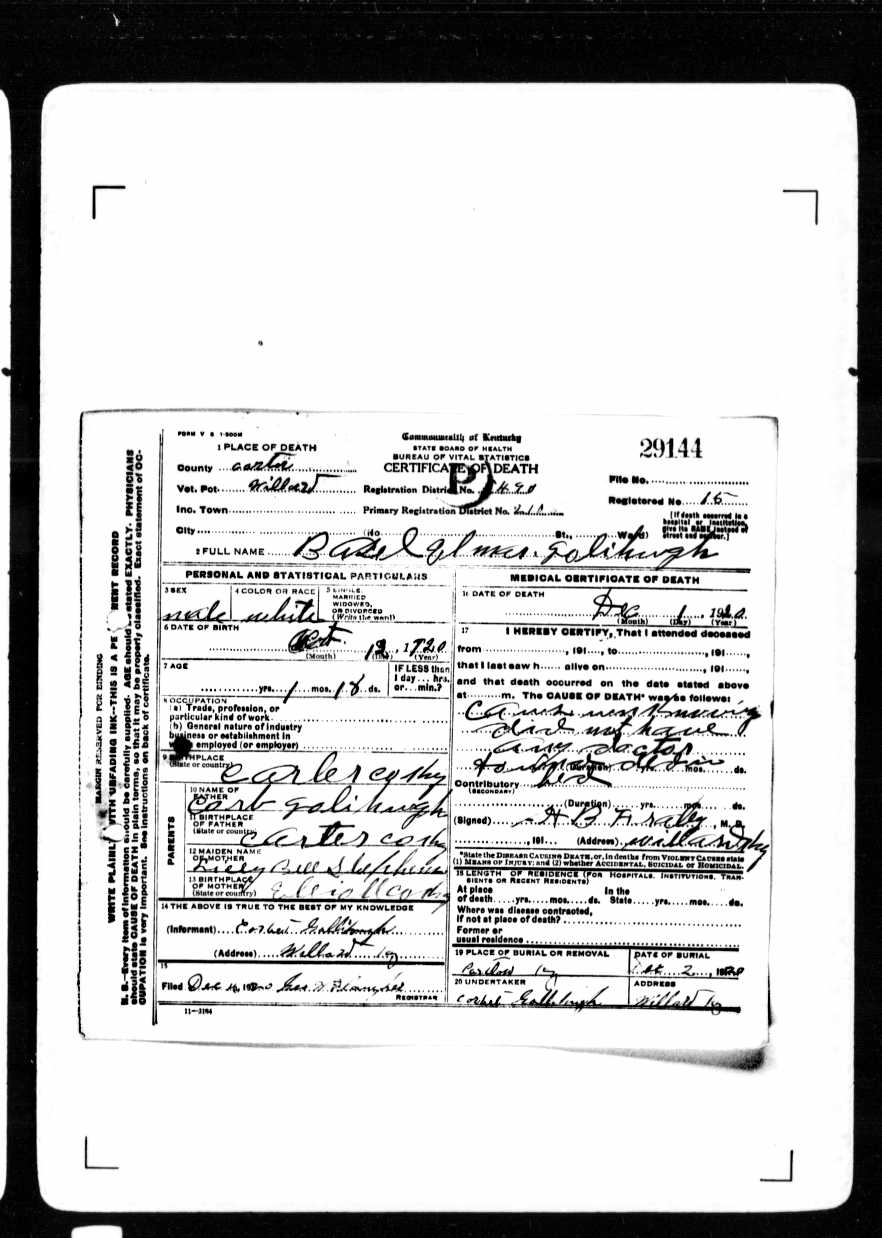 FORM V S 1-500M
Commonwealth of Kentucky
STATE BOARD OF HEALTH
BUREAU OF VITAL STATISTICS
CERTIFICATE OF DEATH
29144
1 PLACE OF DEATH
County Carter
Vot. Pct. Willard
Registration District No. 490
File No.
Registered No. 15
Inc. Town
Primary Registration District No.
[If death occurred in a hospital or institution, give its NAME instead of street and number.]
City (No St., Ward)
2 FULL NAME Basel Elmer Golihugh
PERSONAL AND STATISTICAL PARTICULARS
3 SEX
male
4 COLOR OR RACE
white
5 SINGLE, MARRIED WIDOWED, OR DIVORCED (Write the word)
6 DATE OF BIRTH
Oct. 13, 1920
(Month) (Day) (Year)
7 AGE
yrs. 1 mos. 18 ds.
IF LESS than 1 day ... hrs. or ... min.?
8 OCCUPATION
(a) Trade, profession, or
particular kind of work
(b) General nature of industry
business or establishment in
employed (or employer)
9 BIRTHPLACE
(State or country)
Carter co Ky
PARENTS
10 NAME OF FATHER
Corb Golihugh
11 BIRTHPLACE OF FATHER
(State or country)
Carter co Ky
12 MAIDEN NAME OF MOTHER
Lilly Bell Stephens
13 BIRTHPLACE OF MOTHER
(State or country)
Elliott co Ky
14 THE ABOVE IS TRUE TO THE BEST OF MY KNOWLEDGE
(Informant) Corbet
(Address) Willard Ky
15
Filed Dec 1920
REGISTRAR
11-3184
MEDICAL CERTIFICATE OF DEATH
16 DATE OF DEATH
Dec 1, 1920
(Month) (Day) (Year)
17 I HEREBY CERTIFY, That I attended deceased
from , 191 , to , 191 ,
that I last saw h alive on , 191 ,
and that death occurred on the date stated above
at m. The CAUSE OF DEATH* was as follows:
did not have
any doctor
(Duration) yrs. mos. ds.
bed
Contributory
(SECONDARY)
(Duration) yrs. mos. ds.
(Signed) H B , M. D.
, 191 (Address) Willard Ky
*State the DISEASE CAUSING DEATH, or, in deaths from VIOLENT CAUSES state
(1) MEANS OF INJURY; and (2) whether ACCIDENTAL, SUICIDAL or HOMICIDAL.
18 LENGTH OF RESIDENCE (FOR HOSPITALS, INSTITUTIONS, TRANSIENTS OR RECENT RESIDENTS)
At place of death yrs. mos. ds.
In the State yrs. mos. ds.
Where was disease contracted,
if not at place of death?
Former or
usual residence
19 PLACE OF BURIAL OR REMOVAL
Ky
DATE OF BURIAL
Dec 2, 1920
20 UNDERTAKER
Corbet
ADDRESS
Willard Ky
MARGIN RESERVED FOR BINDING
WRITE PLAINLY WITH UNFADING INK--THIS IS A PERMANENT RECORD
N. B.--Every item of information should be carefully supplied. AGE should be stated EXACTLY. PHYSICIANS
should state CAUSE OF DEATH in plain terms, so that it may be properly classified. Exact statement of OC-
CUPATION is very important. See instructions on back of certificate.